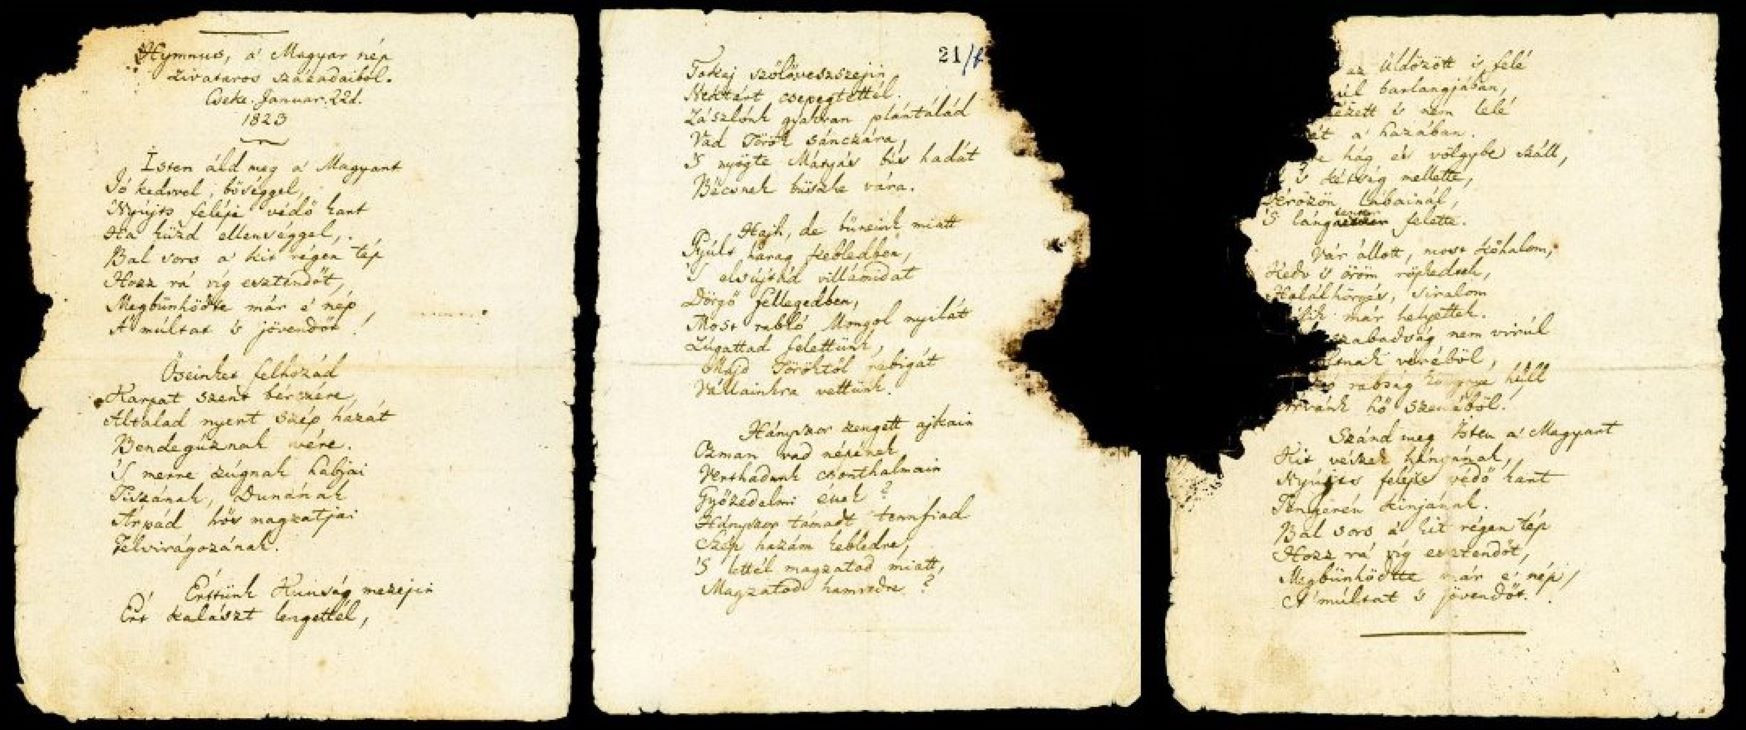 Hymnus, a' Magyar nép
zivataros századaiból.
Cseke. Januar. 22d.
1823
Isten áld meg a' Magyart
Jó kedvvel, bőséggel,
Nyújts feléje védő kart
Ha küzd ellenséggel,
Bal sors a' kit régen tép
Hozz rá víg esztendőt,
Megbűnhődte már e' nép
A' múltat 's jövendőt!
Őseinket felhozád
Kárpát szent bérczére,
Általad nyert szép hazát
Bendegúznak vére.
'S merre zúgnak habjai
Tiszának, Dunának
Árpád hős magzatjai
Felvirágozának.
Értünk Kunság mezejin
Ért kalászt lengettél,
21/
Tokaj szőlővesszejin
Nektárt csepegtettél.
Zászlónk gyakran plántálád
Vad Török sánczára,
'S nyögte Mátyás bús hadát
Bécsnek büszke vára.
Hajh, de bűneink miatt
Gyúlt harag kebledben,
'S elsújtád villámidat
Dörgő fellegedben,
Most rabló Mongol nyilát
Zúgattad felettünk,
Majd Töröktől rabigát
Vállainkra vettünk.
Hányszor zengett ajkain
Ozman vad népének
Vert hadunk csonthalmain
Győzedelmi ének?
Hányszor támadt tennfiad
Szép hazám kebledre,
'S lettél magzatod miatt,
Magzatod hamvedre?
az Üldözött 's felé
barlangjában,
's nem lelé
a' hazában.
hág és völgybe száll,
's kétség mellette,
Vérözön lábainál,
'S láng felette.
Vár állott, most kőhalom,
Kedv 's öröm röpkedtek,
Halálhörgés, siralom
már helyettek.
szabadság nem virúl
véréből,
rabság könnye hull
hő szeméből.
Szánd meg Isten a' Magyart
Kit vészek hányának,
Nyújts feléje védő kart
Tengerén kínjának.
Bal sors a' kit régen tép
Hozz rá víg esztendőt,
Megbűnhődte már e' nép
A' múltat 's jövendőt.